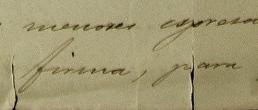 menores egresa
firma, para